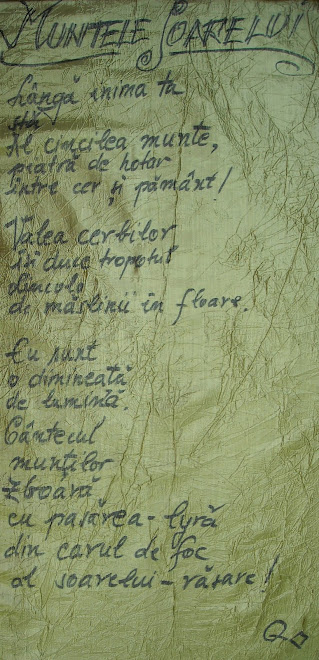 MUNTELE SOARELUI
Lângă inima ta
stă
Al cincilea munte,
piatră de hotar
între cer și pământ!
Valea cerbilor
își duce tropotul
dincolo
de măslinii în floare.
Eu sunt
o dimineață
de lumină.
Cântecul
munților
zboară
cu pasărea-lyră
din carul de foc
al soarelui-răsare!